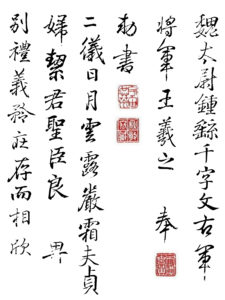 魏太尉鍾繇千字文右軍
將軍王羲之 奉
勅書
二儀日月雲露嚴霜夫貞
婦絜君聖臣良 卑
別禮義矜莊存而相欣